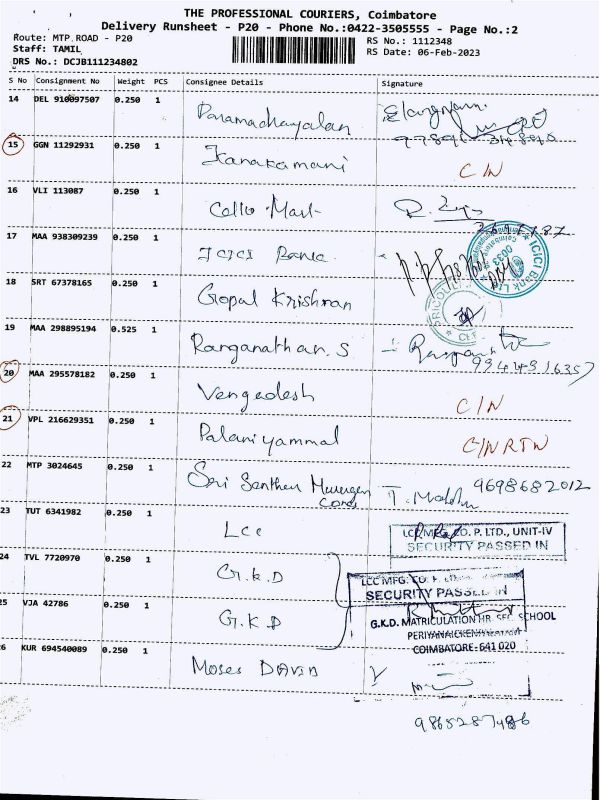 THE PROFESSIONAL COURIERS, Coimbatore
Delivery Runsheet - P20 - Phone No.:0422-3505555 - Page No.:2
Route: MTP.ROAD - P20 RS No.: 1112348
Staff: TAMIL RS Date: 06-Feb-2023
DRS No.: DCJB111234802
S No Consignment No Weight PCS Consignee Details Signature
14 DEL 910097507 0.250 1 Paramadhayalan
15 GGN 11292931 0.250 1 Kanakamani C/N
16 VLI 113087 0.250 1
17 MAA 938309239 0.250 1 ICICI Bank
ICICI Bank Ltd
18 SRT 67378165 0.250 1 Gopal Krishnan
19 MAA 298895194 0.525 1 Ranganathan.S
9944916357
20 MAA 295578182 0.250 1 Vengadesh C/N
21 VPL 216629351 0.250 1 Palaniyammal C/N RTN
22 MTP 3024645 0.250 1 Sri Santhen Murugen Cards 9698682012
23 TUT 6341982 0.250 1 Lcc
CO. P. LTD., UNIT-IV
SECURITY PASSED IN
24 TVL 7720970 0.250 1 G.K.D
LCC MFG. CO. P.
SECURITY PASSED IN
25 VJA 42786 0.250 1 G.K.D
G.K.D. MATRICULATION HR. SEC. SCHOOL
COIMBATORE-641 020
26 KUR 694540089 0.250 1 Moses DAVID
9865287486